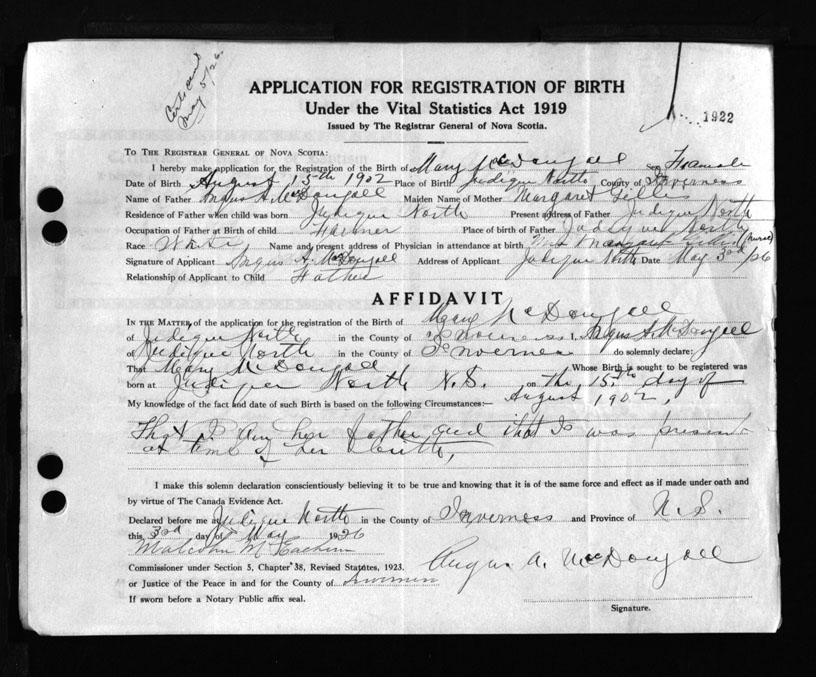 Cert sent
May 5/26
APPLICATION FOR REGISTRATION OF BIRTH
Under the Vital Statistics Act 1919
Issued by The Registrar General of Nova Scotia.
1922
TO THE REGISTRAR GENERAL OF NOVA SCOTIA:
I hereby make application for the Registration of the Birth of Mary McDougall Sex Female
Date of Birth August 15th 1902 Place of Birth Judique North County of Inverness
Name of Father Angus A. McDougall Maiden Name of Mother Margaret Gillis
Residence of Father when child was born Judique North Present address of Father Judique North
Occupation of Father at Birth of child Farmer Place of birth of Father Judique North
Race White Name and present address of Physician in attendance at birth Mrs Margaret (nurse)
Signature of Applicant Angus A. McDougall Address of Applicant Judique North Date May 3rd/26
Relationship of Applicant to Child Father
AFFIDAVIT
IN THE MATTER of the application for the registration of the Birth of Mary McDougall
of Judique North in the County of Inverness I, Angus A. McDougall
of Judique North in the County of Inverness do solemnly declare:
That Mary McDougall Whose Birth is sought to be registered was
born at Judique North N.S. on the 15th day of
My knowledge of the fact and date of such Birth is based on the following Circumstances:— August 1902,
That I am her father and that I was present
at time of her birth,
I make this solemn declaration conscientiously believing it to be true and knowing that it is of the same force and effect as if made under oath and
by virtue of The Canada Evidence Act.
Declared before me at Judique North in the County of Inverness and Province of N.S.
this 3rd day of May 1926
Malcolm McEachern
Commissioner under Section 5, Chapter 38, Revised Statutes, 1923. Angus A. McDougall
or Justice of the Peace in and for the County of Inverness
If sworn before a Notary Public affix seal.
Signature.